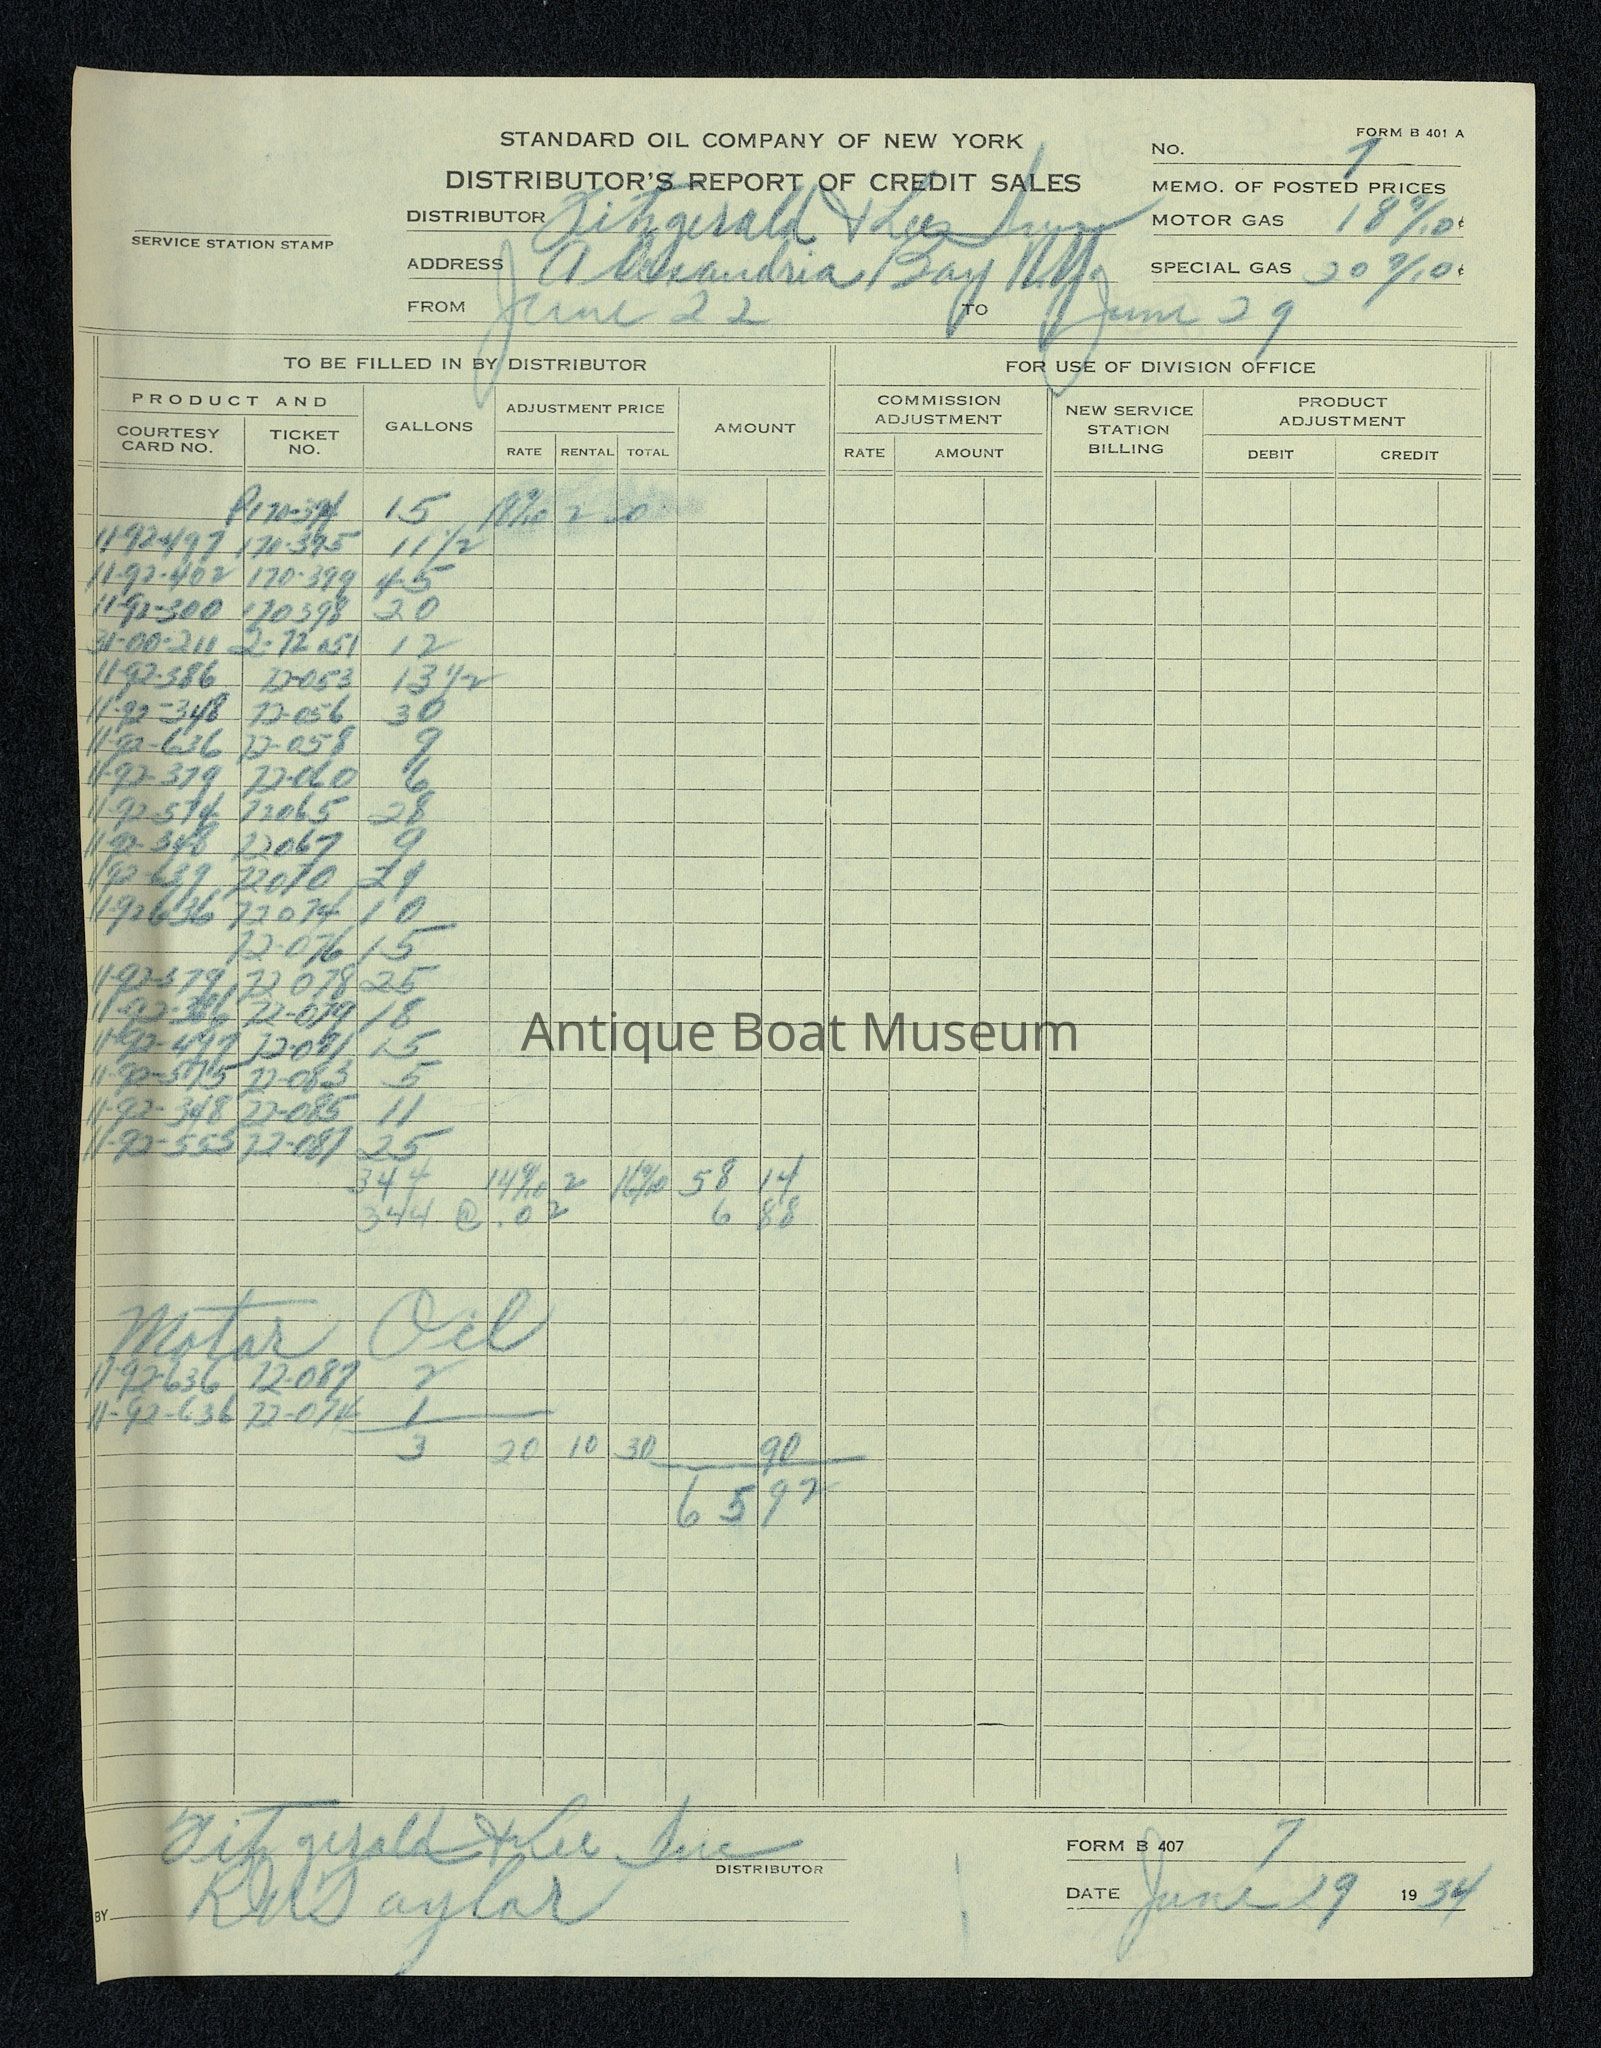 FORM B 401 A
STANDARD OIL COMPANY OF NEW YORK
NO. 7
DISTRIBUTOR'S REPORT OF CREDIT SALES
MEMO. OF POSTED PRICES
DISTRIBUTOR Fitzgerald & Lee Inc
MOTOR GAS 18 9/10 ¢
SERVICE STATION STAMP
ADDRESS Alexandria Bay N.Y.
SPECIAL GAS 20 9/10 ¢
FROM June 22 TO June 29
TO BE FILLED IN BY DISTRIBUTOR FOR USE OF DIVISION OFFICE
PRODUCT AND GALLONS ADJUSTMENT PRICE AMOUNT COMMISSION ADJUSTMENT NEW SERVICE STATION BILLING PRODUCT ADJUSTMENT
COURTESY CARD NO. TICKET NO. RATE RENTAL TOTAL RATE AMOUNT DEBIT CREDIT
170-394 15 2
11-92-497 170-395 11 1/2
11-92-402 170-399 45
11-92-300 170398 20
31-00-211 2-72051 12
11-92-386 72-053 13 1/2
11-92-348 72-056 30
11-92-636 72-058 9
11-92-379 72-060 6
11-92-574 72065 28
11-92-348 72067 9
11-92-639 72070
11-92-636 72074 10
72-076 15
11-92-379 72078 25
11-92-386 72-079 18
11-92-497 15
11-92-575 72-083 5
11-92-348 72-085 11
11-92-553 72-087 25
344 14 9/10 2 16 9/10 58 14
344 @ .02 6 88
Motor Oil
11-92-636 72-087 2
11-92-636 72-074 1
3 20 10 30 90
65 92
Antique Boat Museum
Fitzgerald & Lee Inc
DISTRIBUTOR
FORM B 407 7
BY Taylor
DATE June 29 1934